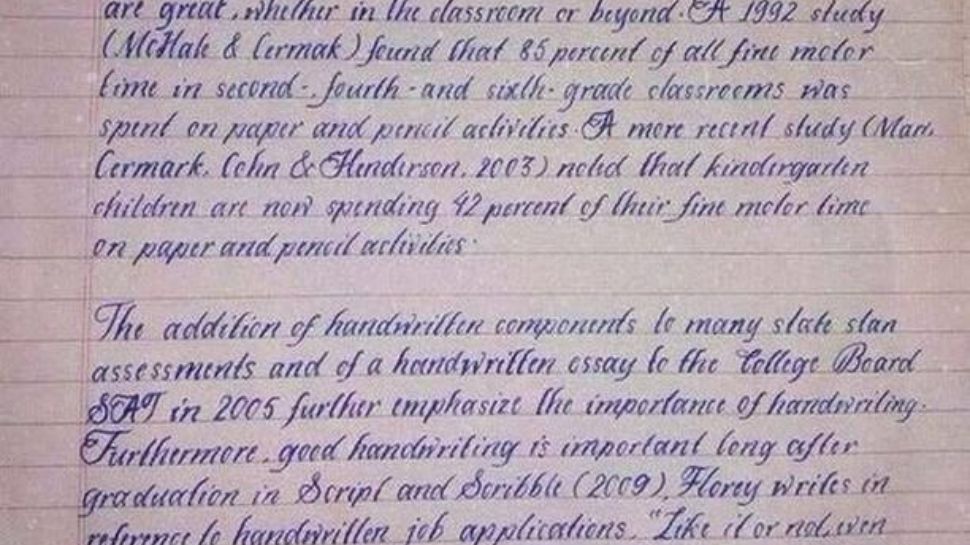 are great, whether in the classroom or beyond. A 1992 study
(McHale & Cermak) found that 85 percent of all fine motor
time in second-, fourth-and sixth-grade classrooms was
spent on paper and pencil activities. A more recent study (Marr,
Cermark, Cohn & Henderson, 2003) noted that kindergarten
children are now spending 42 percent of their fine motor time
on paper and pencil activities.
The addition of handwritten components to many state stan
assessments and of a handwritten essay to the College Board
SAT in 2005 further emphasize the importance of handwriting.
Furthermore, good handwriting is important long after
graduation in Script and Scribble (2009), Florey writes in
reference to handwritten job applications, "Like it or not, even